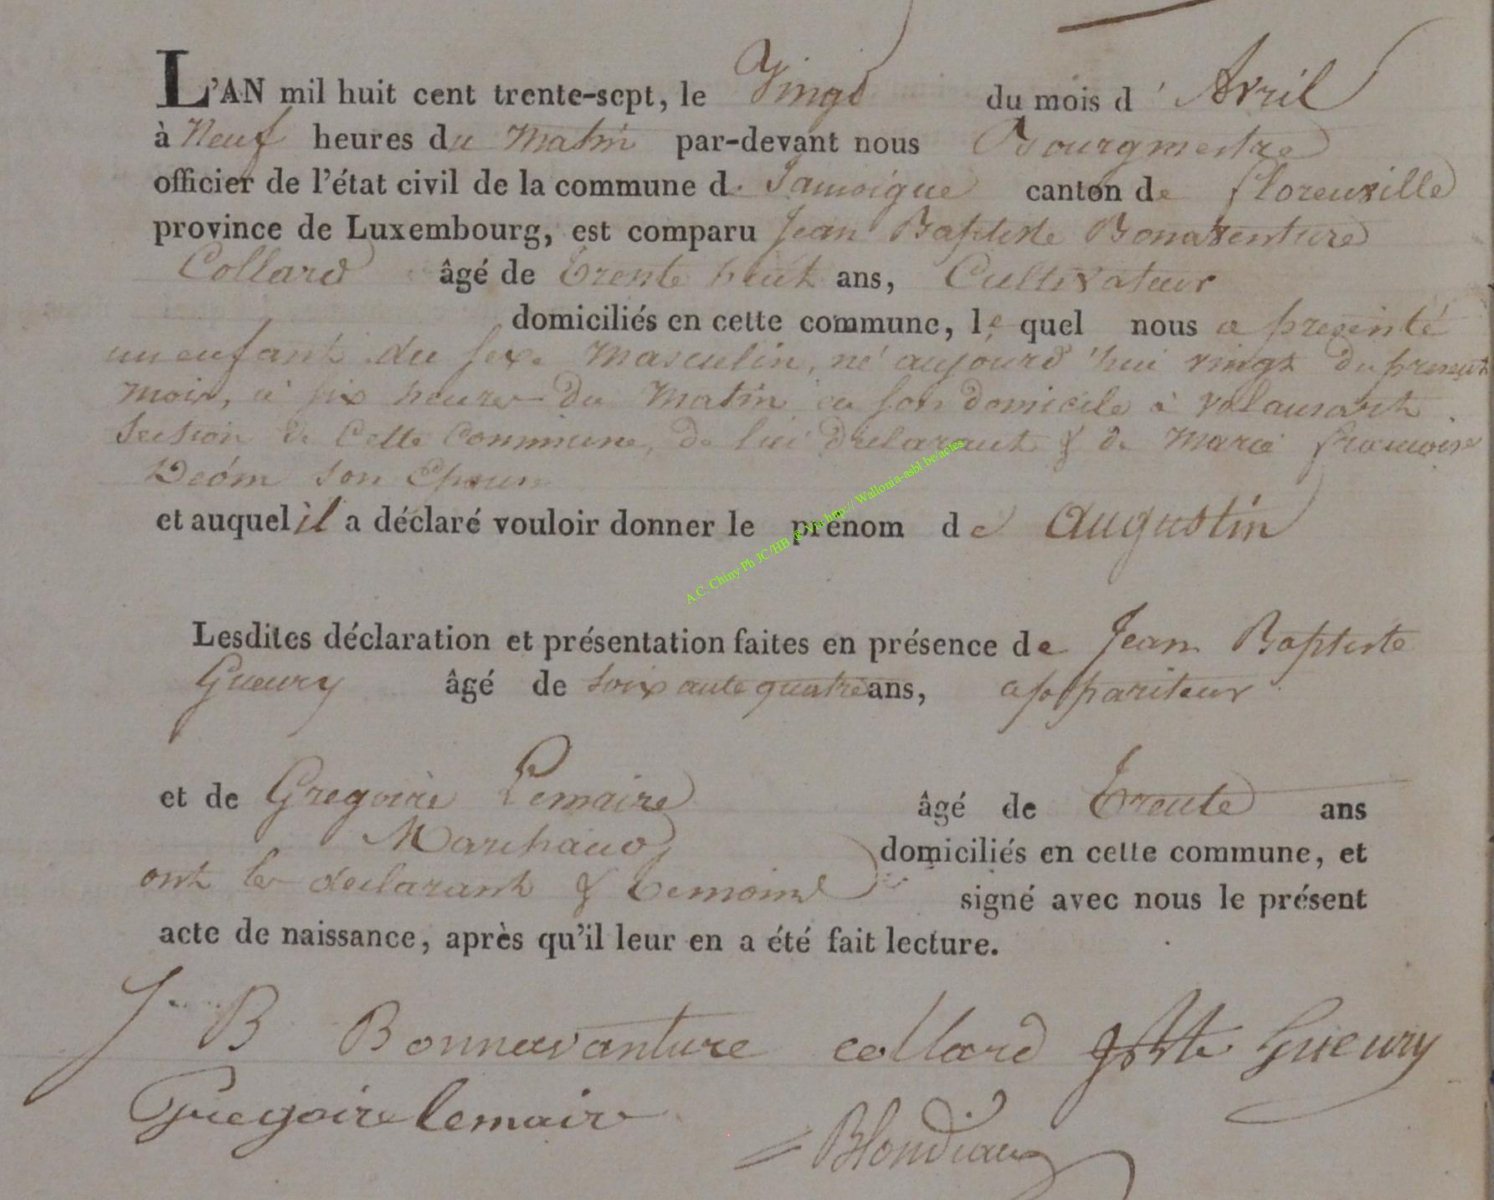 L'AN mil huit cent trente-sept, le Vingt du mois d'Avril
à Neuf heures du Matin par-devant nous Bourgmestre
officier de l'état civil de la commune de Jamoigne canton de florenville
province de Luxembourg, est comparu Jean Baptiste Bonaventure
Collard âgé de Trente huit ans, Cultivateur
domiciliés en cette commune, le quel nous a presenté
un enfant du sexe Masculin, né aujourd'hui vingt du present
mois, à six heures du Matin en son domicile à valansart
Section de Cette Commune, de lui declarant & de Marie françoise
Déom son Epouse
et auquel il a déclaré vouloir donner le prénom de Augustin
A.C. Chiny Ph JC/HB Wallonia-asbl be/actes
Lesdites déclaration et présentation faites en présence de Jean Baptiste
Gueury âgé de soixante quatre ans, appariteur
et de Gregoire Lemaire âgé de Trente ans
Marchand domiciliés en cette commune, et
ont les declarant & temoins signé avec nous le présent
acte de naissance, après qu'il leur en a été fait lecture.
J B Bonnavanture collard Gueury
Gregoire lemair Blondiaux